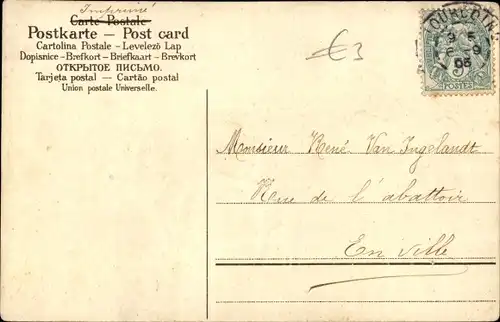 Imprimé
Carte Postale
Postkarte – Post card
Cartolina Postale – Levelező Lap
Dopisnice – Brefkort – Briefkaart – Brevkort
ОТКРЫТОЕ ПИСЬМО.
Tarjeta postal – Cartão postal
Union postale Universelle.
€3
DUNKERQUE
5
9
05
POSTES
Monsieur René Van Ingelandt
Rue de l'abattoir
En ville